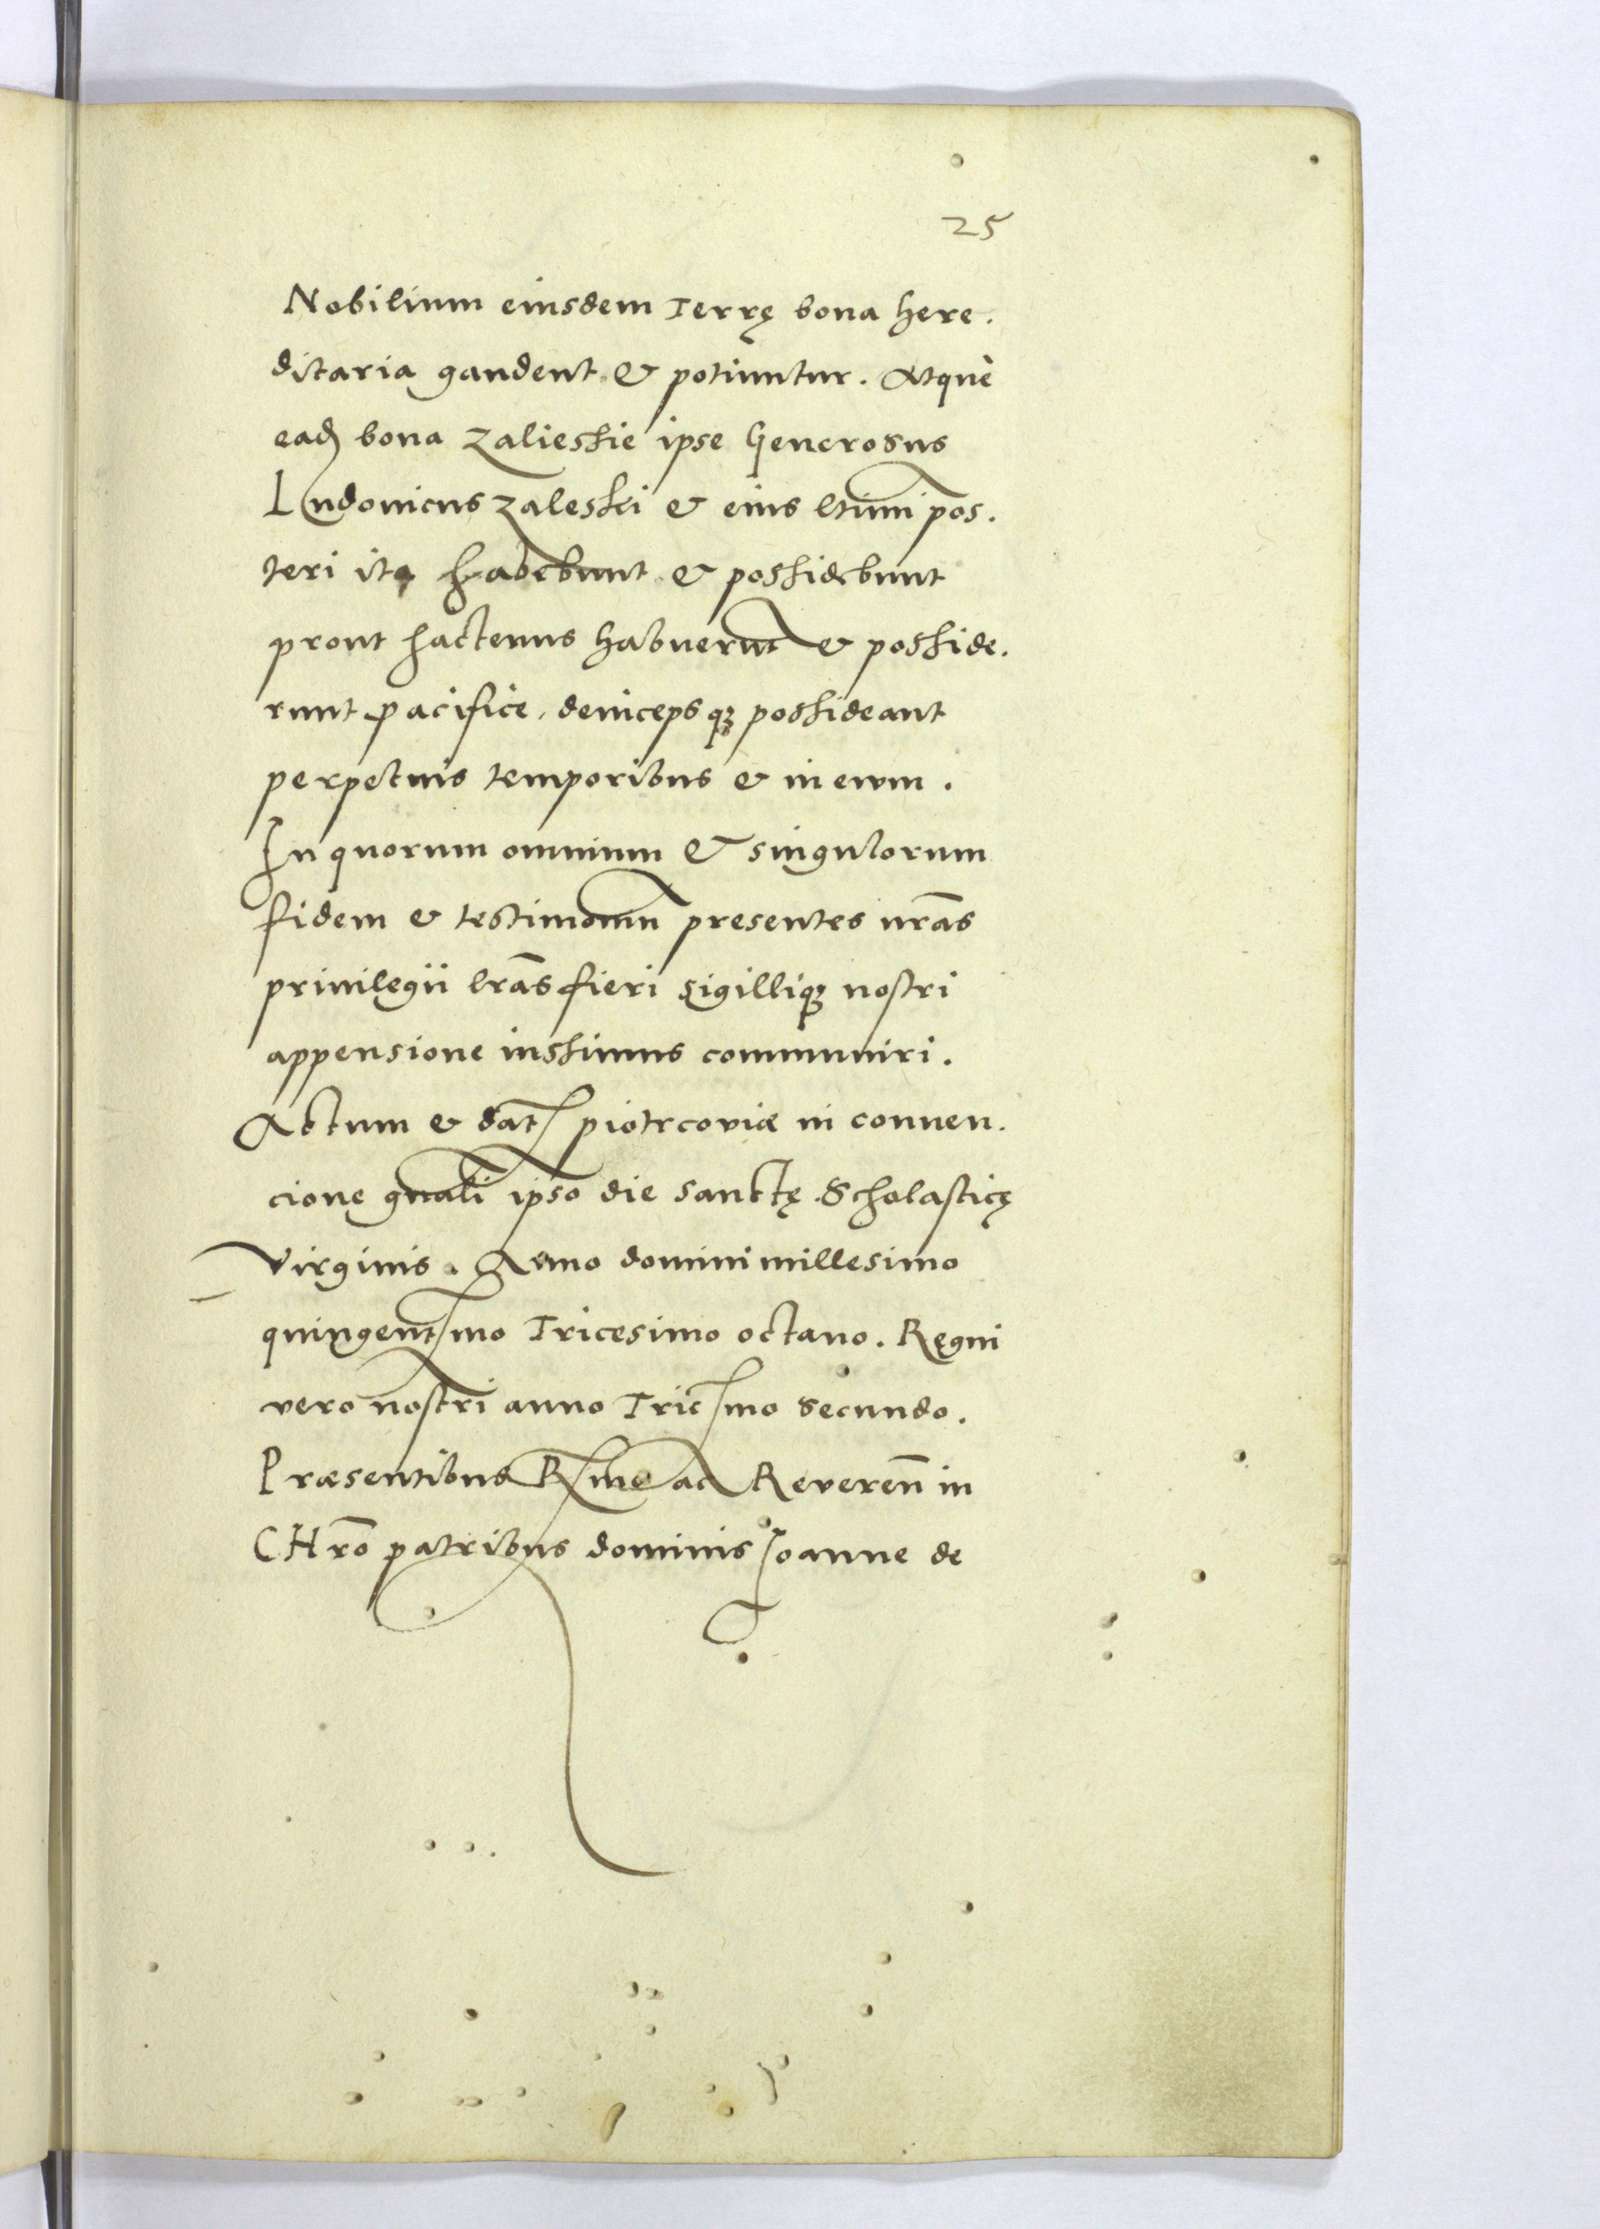 25
Nobilium eiusdem Terrę bona here.
ditaria gaudent & potiuntur. Atque
ead̄ bona Zalieskie ipse Generosus
Ludouicus Zaleski & eius ltimi pos.
teri ita habebunt & possidebunt
prout hactenus habuerunt & posside.
runt pacifice, deincepsq̨ possideant
perpetuis temporibus & in ewm.
In quorum omnium & singulorum
fidem & testimonium presentes nrãs
priuilegii lrãs fieri sigilliq̨ nostri
appensione iussimus communiri.
Actum & dat piotrcoviæ in conuen.
cione gnali ipso die sanctę Scholasticę
Virginis. Anno domini millesimo
quingentsmo Tricesimo octauo. Regni
vero nostri anno Tricsmo secundo.
Præsentibus Rsme ac Reveren̄ in
CHrõ patribus dominis Joanne de